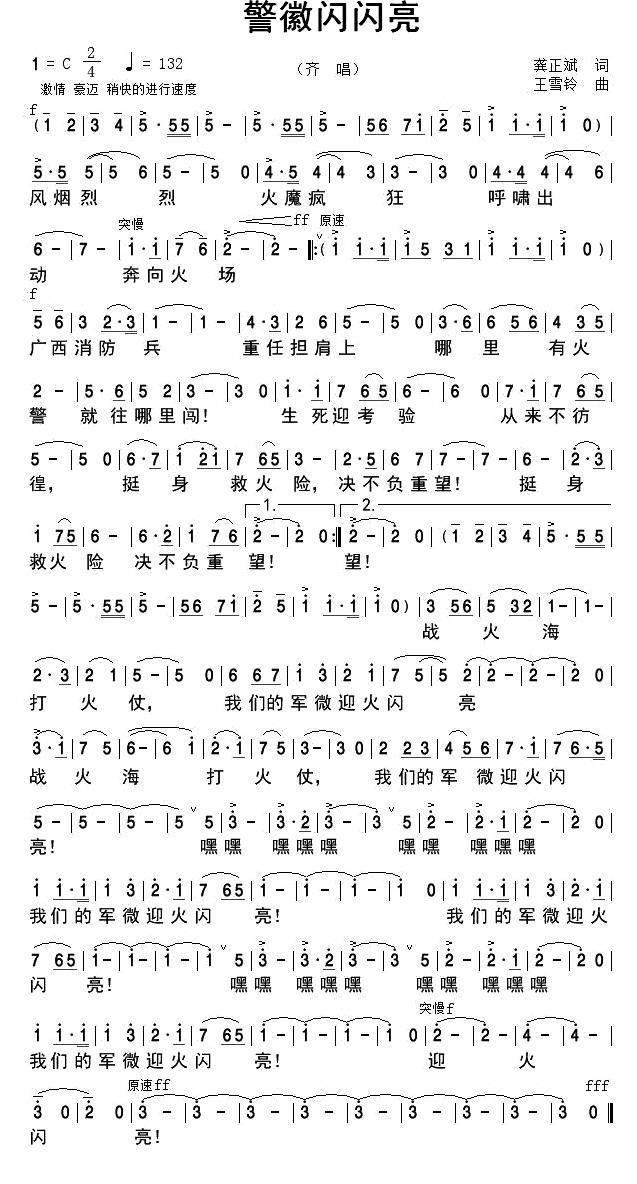 警徽闪闪亮
1 = C 2/4 ♩ = 132
（齐 唱）
龚正斌 词
王雪铃 曲
激情 豪迈 稍快的进行速度
f
( 1 2 | 3 4 | 5 · 55 | 5 - | 5 · 55 | 5 - | 56 71 | 2 5 | 1 1·1 | 1 0 ) |
5·5 | 5 6 | 5 - | 5 0 | 4·5 | 4 3 | 3 - | 3 0 | 4·4 | 4 6 |
风 烟 烈 烈 火 魔 疯 狂 呼 啸 出
突慢 ff 原速
6 - | 7 - | 1·1 | 7 6 | 2 - | 2 - ‖: ( 1 1·1 | 1 5 3 1 | 1 1·1 | 1 0 ) |
动 奔 向 火 场
f
5 6 | 3 2·3 | 1 - | 1 - | 4·3 | 2 6 | 5 - | 5 0 | 3·6 | 6 56 | 4 35 |
广 西 消 防 兵 重 任 担 肩 上 哪 里 有 火
2 - | 5·6 | 5 2 | 3 - | 3 0 | 1·1 | 7 65 | 6 - | 6 0 | 7·1 | 7 65 |
警 就 往 哪 里 闯！ 生 死 迎 考 验 从 来 不 彷
5 - | 5 0 | 6·7 | 1 21 | 7 65 | 3 - | 2·5 | 6 7 | 7 - | 7 - | 6 - | 2·3 |
徨， 挺 身 救 火 险， 决 不 负 重 望！ 挺 身
1. 2.
1 75 | 6 - | 6·2 | 1 76 | 2 - | 2 0 :‖ 2 - | 2 0 | ( 1 2 | 3 4 | 5 · 55 |
救 火 险 决 不 负 重 望！ 望！
5 - | 5 · 55 | 5 - | 56 71 | 2 5 | 1 1·1 | 1 0 ) | 3 56 | 5 32 | 1 - | 1 - |
战 火 海
2·3 | 2 1 | 5 - | 5 0 | 6 67 | 1 3 | 2 1 | 7 5 | 5 2 | 2 - | 2 - | 2 0 |
打 火 仗， 我 们的 军 微 迎 火 闪 亮
3·1 | 7 5 | 6 - | 6 1 | 2·1 | 7 5 | 3 - | 3 0 | 2 23 | 4 56 | 7·1 | 7 6·5 |
战 火 海 打 火 仗， 我 们的 军 微 迎 火 闪
5 - | 5 - | 5 - | 5 5 | 3 - | 3·2 | 3 - | 3 5 | 2 - | 2·1 | 2 - | 2 0 |
亮！ 嘿 嘿 嘿 嘿 嘿 嘿 嘿 嘿 嘿 嘿
1 1·1 | 1 3 | 2·1 | 7 65 | 1 - | 1 - | 1 - | 1 0 | 1 1·1 | 1 3 | 2·1 |
我 们 的 军 微 迎 火 闪 亮！ 我 们 的 军 微 迎 火
7 65 | 1 - | 1 - | 1 - | 1 5 | 3 - | 3·2 | 3 - | 3 5 | 2 - | 2·1 | 2 - | 2 0 |
闪 亮！ 嘿 嘿 嘿 嘿 嘿 嘿 嘿 嘿 嘿 嘿
突慢 f
1 1·1 | 1 3 | 2·1 | 7 65 | 1 - | 1 - | 1 - | 1 0 | 2 - | 2 - | 4 - | 4 - |
我 们 的 军 微 迎 火 闪 亮！ 迎 火
原速 ff fff
3 0 | 2 0 | 3 - | 3 - | 3 - | 3 - | 3 - | 3 - | 3 - | 3 - | 3 0 ‖
闪 亮！